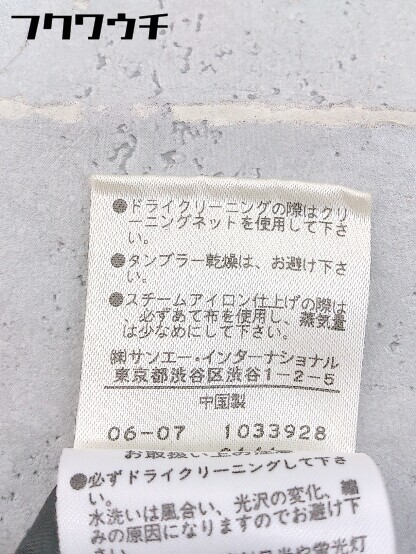 フクワウチ
●ドライクリーニングの際はクリ
ーニングネットを使用して下さ
い。
●タンブラー乾燥は、お避け下さ
い。
●スチームアイロン仕上げの際は
、必ずあて布を使用し、蒸気量
は少なめにして下さい。
㈱サンエー・インターナショナル
東京都渋谷区渋谷1-2-5
中国製
06-07 1033928
お取扱い上の
●必ずドライクリーニングして下さ
い。
水洗いは風合い、光沢の変化、縮
みの原因になりますのでお避け下
さい。
や蛍光灯